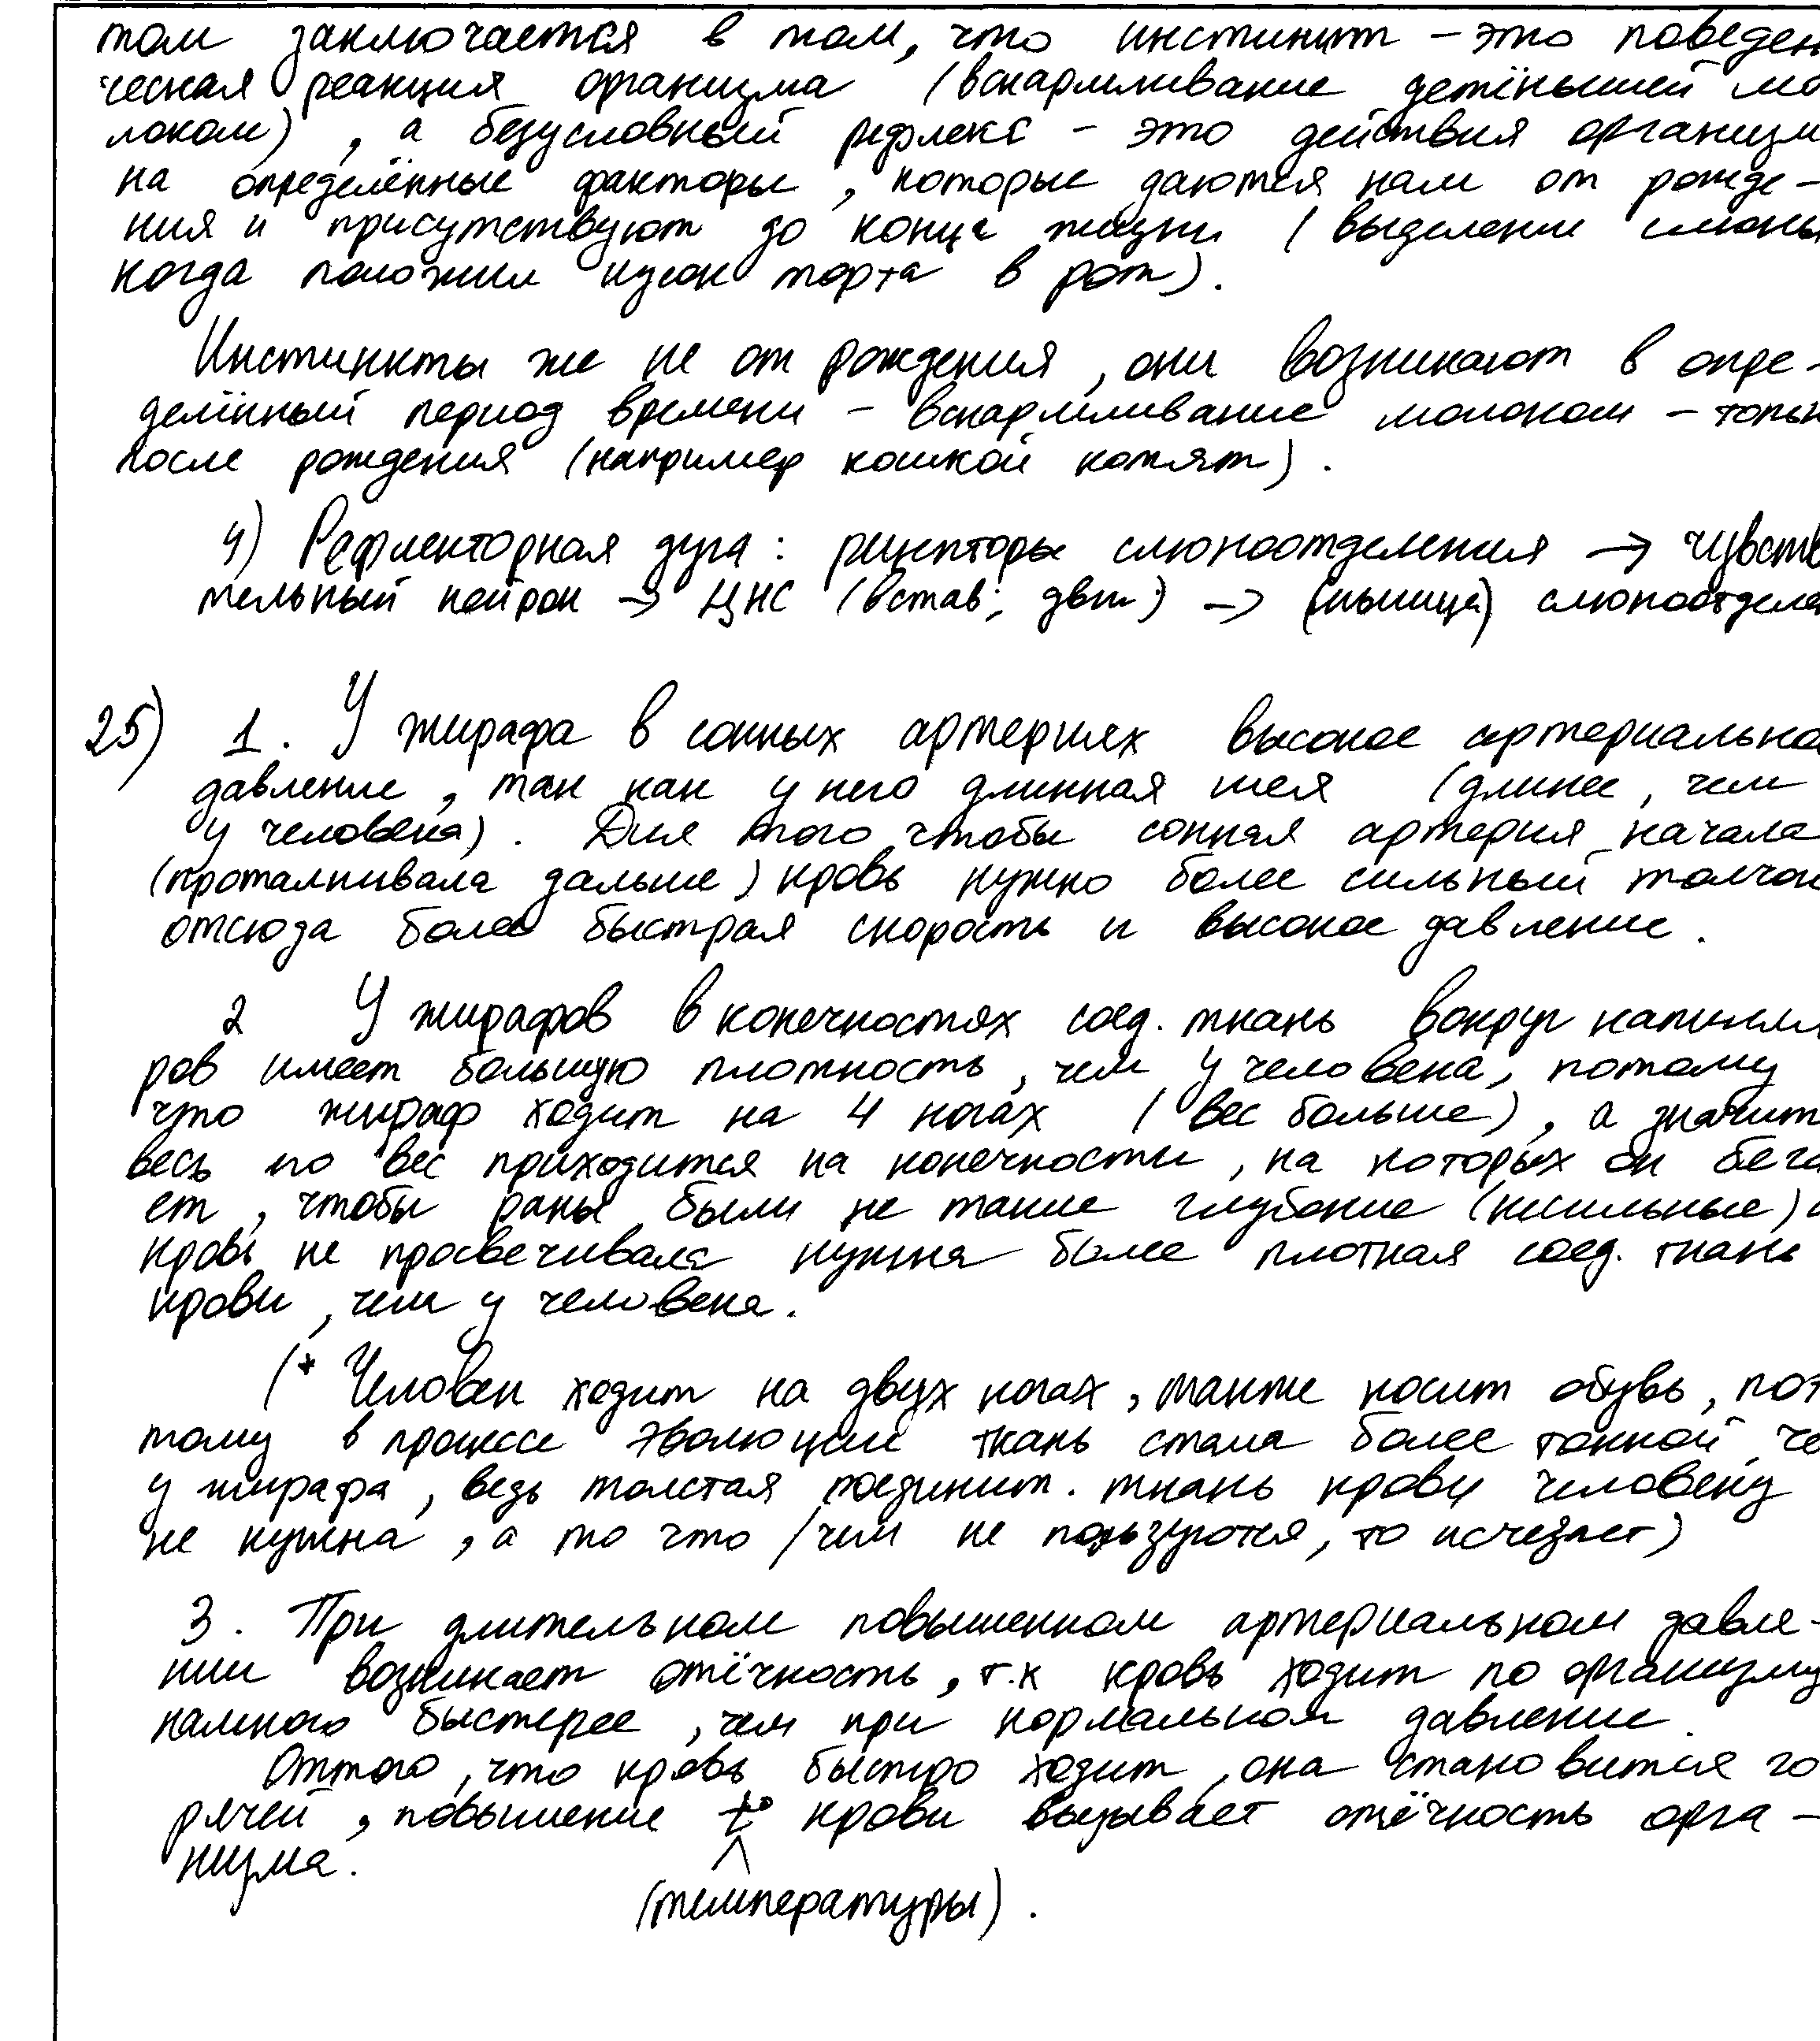 том заключается в том, что инстинкт - это поведен
ческая реакция организма (вскармливание детёнышей мо
локом), а безусловный рефлекс - это действия организм
на определённые факторы, которые даются нам от рожде-
ния и присутствуют до конца жизни (выделение слюны
когда положил кусок торта в рот).
Инстинкты же не от рождения, они возникают в опре-
делённый период времени - вскармливание молоком - тольк
после рождения (например кошкой котят).
4) Рефлекторная дуга: рецепторы слюноотделения → чувств
тельный нейрон → ЦНС (встав; двт.) → (мышца) слюноотделе
25) 1. У жирафа в сонных артериях высокое артериально
давление, так как у него длинная шея (длинее, чем
у человека). Для того чтобы сонная артерия качала
(проталкивала дальше) кровь нужно более сильный толчок
отсюда более быстрая скорость и высокое давление.
2 У жирафов в конечностях соед. ткань вокруг капилля
ров имеет большую плотность, чем у человека, потому
что жираф ходит на 4 ногах (вес больше), а значит
весь его вес приходится на конечности, на которых он бега
ет, чтобы раны были не такие глубокие (несильные) и
кровь не просвечивала нужна более плотная соед. ткань
крови, чем у человека.
(* Человек ходит на двух ногах, также носит обувь, поэ
тому в процессе эволюции ткань стала более тонкой, че
у жирафа, ведь толстая соединит. ткань крови человеку
не нужна, а то что /чем не пользуются, то исчезает)
3. При длительном повышенном артериальном давле-
нии возникает отёчность, т.к кровь ходит по организму
намного быстерее, чем при нормальном давление.
Оттого, что кровь быстро ходит, она становится го
рячей, повышение t° крови вызывает отёчность орга-
низма.
(температуры).